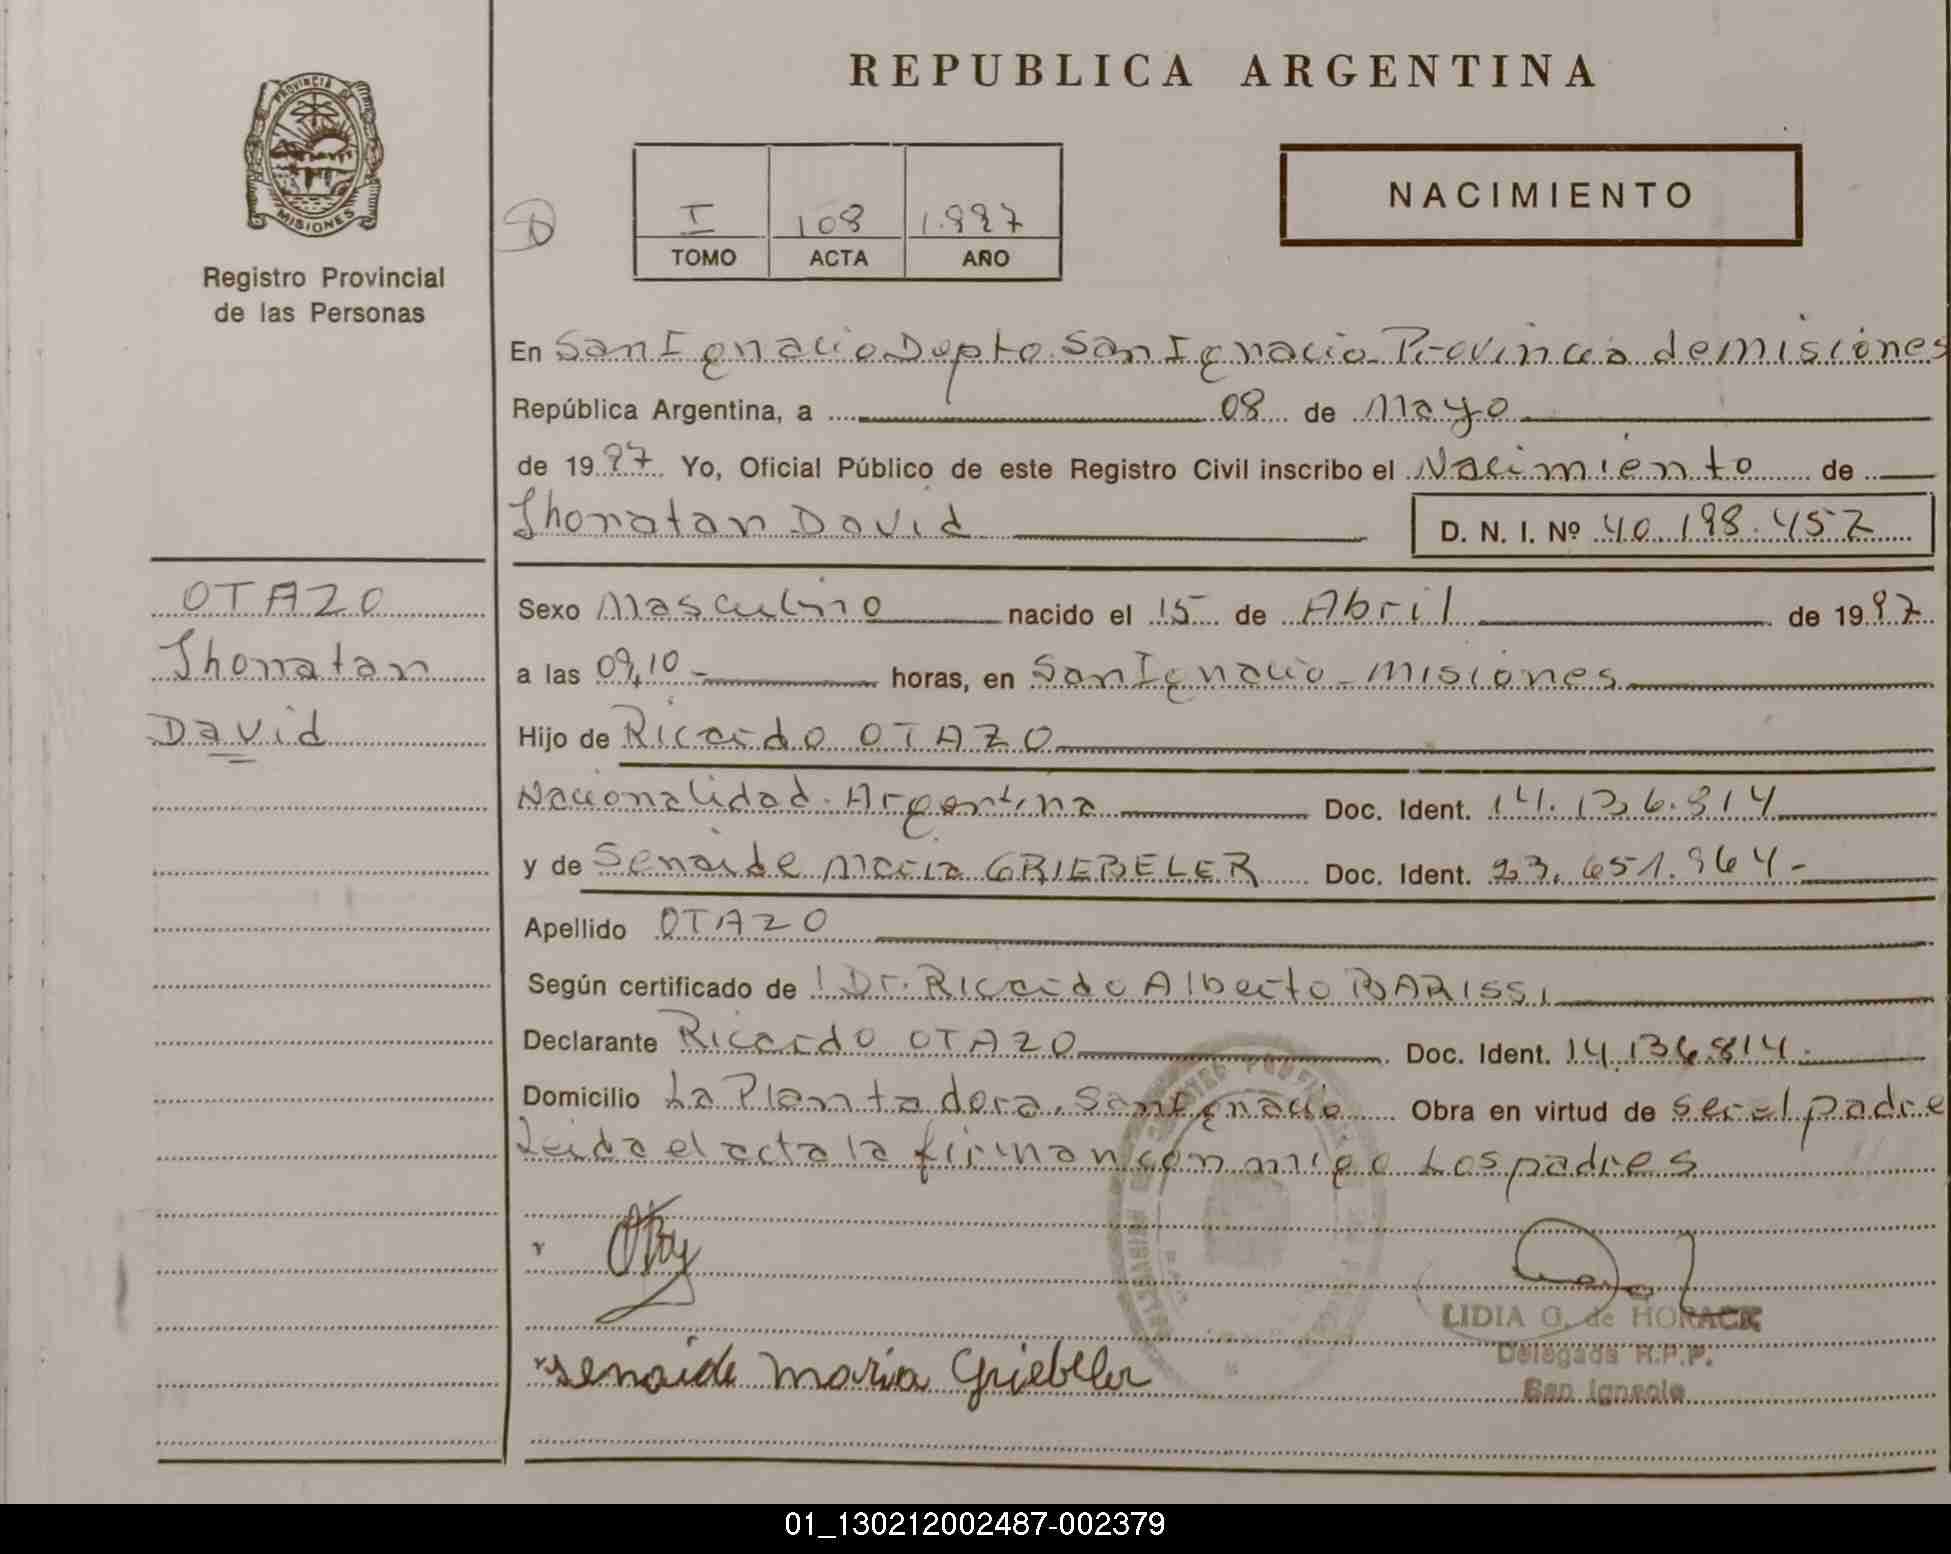 REPUBLICA ARGENTINA
PROVINCIA DE
MISIONES
Registro Provincial
de las Personas
I 108 1.997
TOMO ACTA AÑO
NACIMIENTO
En San Ignacio Depto San Ignacio Provincia de misiones
República Argentina, a 08 de Mayo
de 1997 Yo, Oficial Público de este Registro Civil inscribo el Nacimiento de
Jhonatan David
D. N. I. Nº 40.198.457
OTAZO
Jhonatan
David
Sexo Masculino nacido el 15 de Abril de 1997
a las 09,10 - horas, en San Ignacio - misiones
Hijo de Ricardo OTAZO
Nacionalidad. Argentina Doc. Ident. 14.136.814
y de Senaide María GRIEBELER Doc. Ident. 23.651.964 -
Apellido OTAZO
Según certificado de Dr. Ricardo Alberto BARISSI
Declarante Ricardo OTAZO Doc. Ident. 14.136.814.
Domicilio La Plantadora. San Ignacio Obra en virtud de ser el padre
Leida el acta la firman conmigo Los padres
LIDIA G. de HORACK
Delegada R.P.P.
San Ignacio
senaide maria Griebeler
01_130212002487-002379